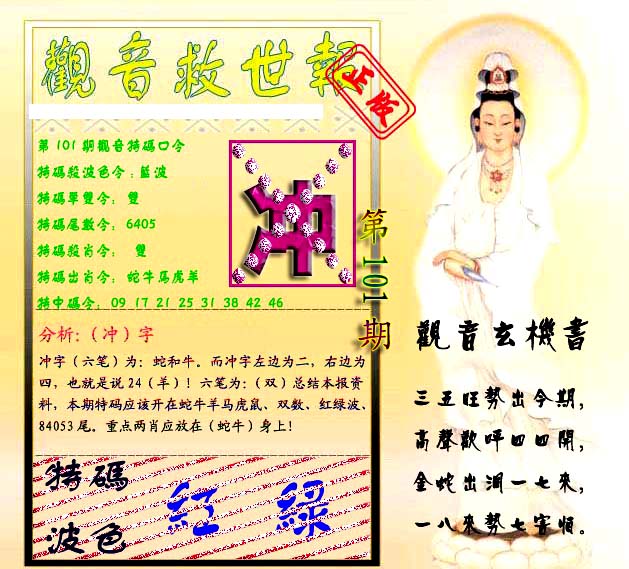 觀音救世報
正版
第101期觀音特碼口令
特碼殺波色令:藍波
特碼單雙令: 雙
特碼尾數令: 6405
特碼殺肖令: 雙
特碼出肖令: 蛇牛馬虎羊
特中碼令: 09 17 21 25 31 38 42 46
冲
第101期
分析:(冲)字
冲字(六笔)为:蛇和牛。而冲字左边为二,右边为
四,也就是说24(羊)!六笔为:(双)总结本报资
料,本期特码应该开在蛇牛羊马虎鼠、双数、红绿波、
84053尾。重点两肖应放在(蛇牛)身上!
特碼
波色
紅 綠
觀音玄機書
三五旺勢出今期,
高聲歡呼四四開,
金蛇出洞一七來,
一八來勢七害惱。